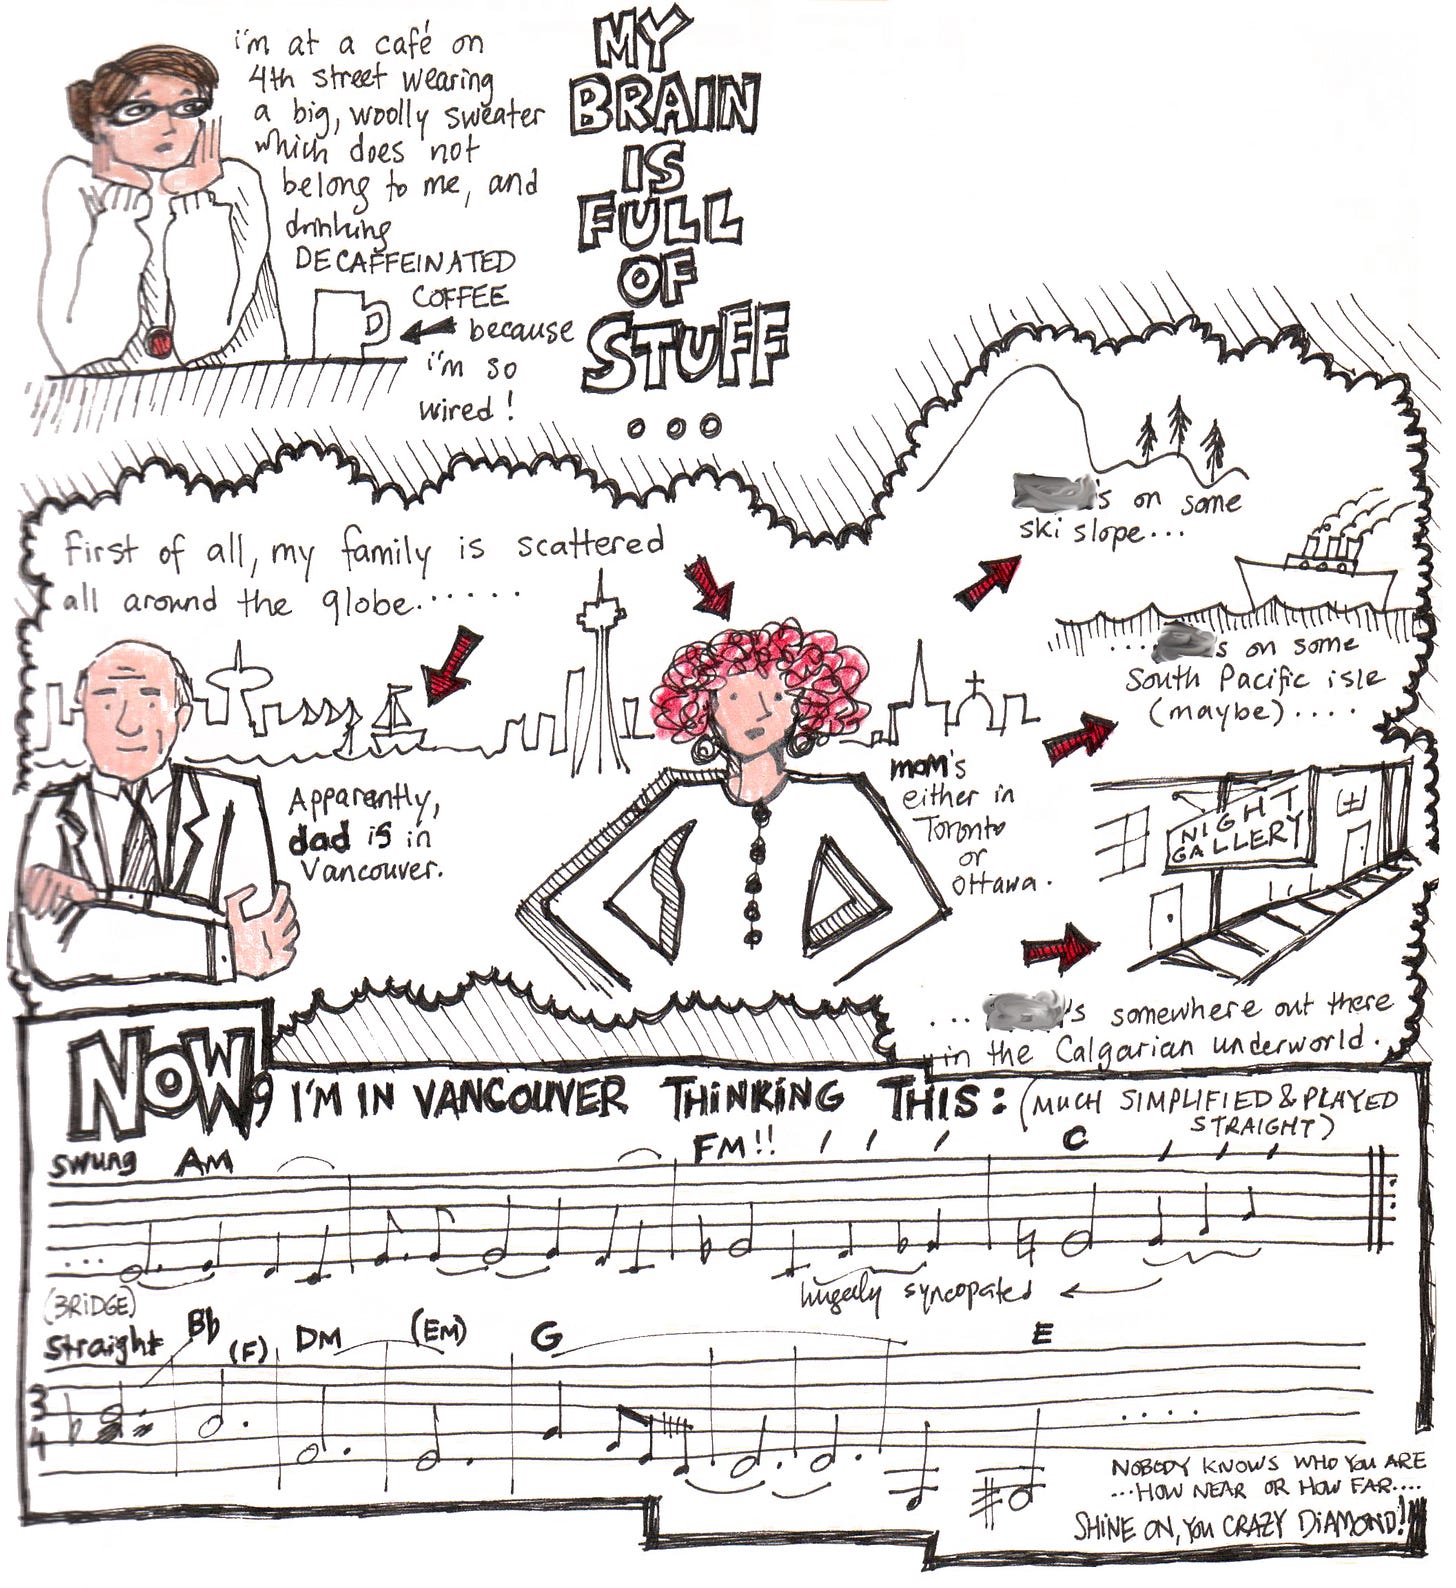 i'm at a café on
4th street wearing
a big, woolly sweater
which does not
belong to me, and
drinking
DECAFFEINATED
COFFEE
because
i'm so
wired!
D
MY
BRAIN
IS
FULL
OF
STUFF
...
First of all, my family is scattered
all around the globe......
Apparently,
dad is in
Vancouver.
mom's
either in
Toronto
or
Ottawa.
's on some
ski slope...
...s on some
South Pacific isle
(maybe)....
NIGHT
GALLERY
...'s somewhere out there
in the Calgarian underworld.
NOW, I'M IN VANCOUVER THINKING THIS: (MUCH SIMPLIFIED & PLAYED
STRAIGHT)
swung Am FM!! C
hugely syncopated
(BRIDGE)
straight Bb (F) Dm (Em) G E
3
4
....
NOBODY KNOWS WHO YOU ARE
...HOW NEAR OR HOW FAR....
SHINE ON, YOU CRAZY DIAMOND!